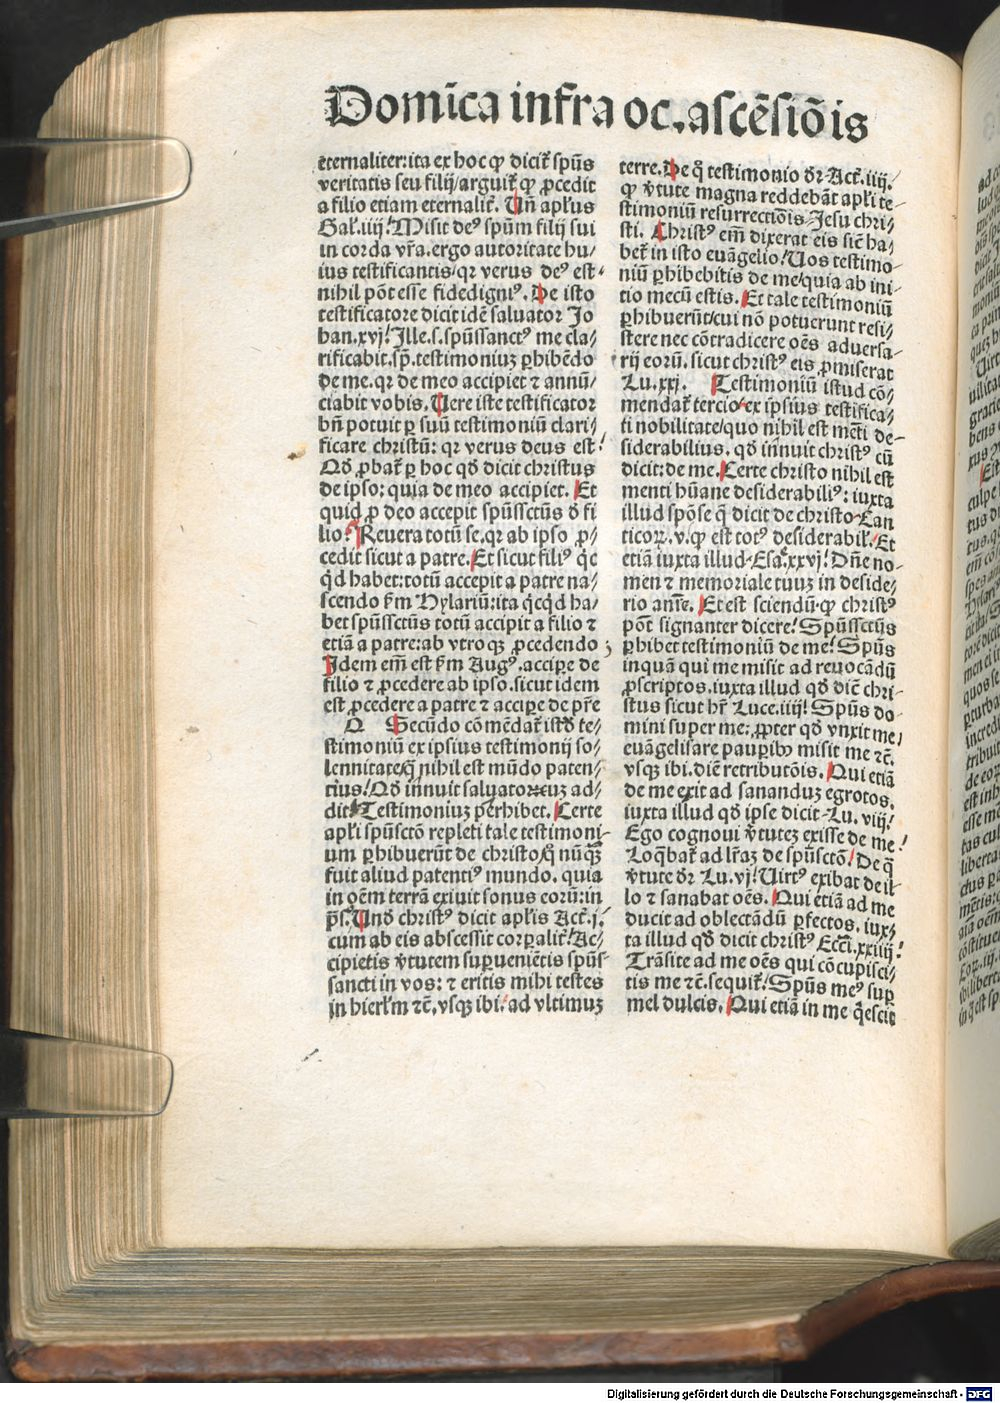 Domīca infra oc. ascēsiōis
eternaliter: ita ex hoc ꝙ dicit᷑ spūs
veritatis seu filij/ arguit᷑ ꝙ ꝓcedit
a filio etiam eternalit᷑. Vn̄ apl'us
Gal'. iiij! Misit deꝰ spūm filij sui
in corda vr̄a. ergo autoritate hu/
ius testificantis/ qr verus deꝰ est
nihil pōt esse fidedigniꝰ. De isto
testificatore dicit idē saluator Jo
han. xvj! Ille. s. spūssanctꝰ me cla/
rificabit. sp̄. testimoniuꝫ ꝑhibēdo
de me. qr de meo accipiet ⁊ annū/
ciabit vobis. Uere iste testificator
bn̄ potuit ꝑ suū testimoniū clari/
ficare christū: qr verus deus est!
Qd̓ ꝓbat᷑ ꝑ hoc qd̓ dicit christus
de ipso: quia de meo accipiet. Et
quid ꝓ deo accepit spūssctūs d̓ fi
lio? Reuera totū se. qr ab ipso ꝓ/
cedit sicut a patre. Et sicut filiꝰ q̇c
q̇d habet: totū accepit a patre na/
scendo ẜm Hylariū: ita q̇cq̇d ha/
bet spūssctūs totū accipit a filio ⁊
etiā a patre: ab vtroqꝫ ꝓcedendo
Idem em̄ est ẜm Augꝰ. accipe de
filio ⁊ ꝓcedere ab ipso. sicut idem
est ꝓcedere a patre ⁊ accipe de pr̄e
Q Secūdo cōmēdat᷑ istd̓ te/
stimoniū ex ipsius testimonij so/
lennitate/ q̄ nihil est mūdo paten/
tius! Qd̓ innuit saluator cuꝫ ad/
dit! Testimoniuꝫ perhibet. Certe
apl'i spūsctō repleti tale testimoni/
um ꝑhibuerūt de christo/ q̄ nūq̄ꝫ
fuit aliud patentiꝰ mundo. quia
in oēm terrā exiuit sonus eorū: in
p̄s. Und̓ christꝰ dicit apl'is Act᷑. j.
cum ab eis abscessit corꝑalit᷑! Ac/
cipietis v̓tutem suꝑuenietis spūs
sancti in vos: ⁊ eritis mihi testes
in hierl'm ⁊c̄. vsqꝫ ibi. ad vltimuꝫ
terre. De q̄ testimonio dr̄ Act᷑. iiij.
ꝙ v̓tute magna reddebāt apl'i te/
stimoniū resurrectiōis Jesu chri/
sti. Christꝰ em̄ dixerat eis sic̄ ha/
bet᷑ in isto euāgelio! Uos testimo/
niū ꝑhibebitis de me/ quia ab ini/
tio mecū estis. Et tale testimoniū
ꝑhibuerūt/ cui nō potuerunt resi/
stere nec cōtradicere oēs aduersa/
rij eorū. sicut christꝰ eis ꝓmiserat
Lu. xxj. Testimoniū istud cō/
mendat᷑ tercio ex ipsius testifica/
ti nobilitate/ quo nihil est mēti de/
siderabilius. qd̓ innuit christꝰ cū
dicit: de me. Certe christo nihil est
menti hūane desiderabiliꝰ: iuxta
illud spōse q̄ dicit de christo Can
ticoꝝ. v. ꝙ est totꝰ desiderabil'. Et
etiā iuxta illud Esa. xxvj! Dn̄e no/
men ⁊ memoriale tuuꝫ in deside/
rio aīe. Et est sciendū ꝙ christꝰ
pōt signanter dicere! Spūssctūs
ꝑhibet testimoniū de me! Spūs
inquā qui me misit ad reuocādū
ꝓscriptos. iuxta illud qd̓ dic̄ chri/
stus sicut hr̄ Luce. iiij! Spūs do/
mini super me: ꝓpter qd̓ vnxit me/
euāgelisare pauꝑibꝰ misit me ⁊c̄.
vsqꝫ ibi. diē retributōis. Qui etiā
de me exit ad sananduꝫ egrotos.
iuxta illud qd̓ ipse dicit Lu. viij!
Ego cognoui v̓tuteꝫ exisse de me!
Loq̄bat᷑ ad lr̄aꝫ de spūsctō! De q̄
v̓tute dr̄ Lu. vj! Uirtꝰ exibat de il/
lo ⁊ sanabat oēs. Qui etiā ad me
ducit ad oblectādū ꝑfectos. iux/
ta illud qd̓ dicit christꝰ Ecci. xxiiij!
Trāsite ad me oēs qui cōcupisci/
tis me ⁊c̄. sequit᷑! Spūs meꝰ suꝑ
mel dulcis. Qui etiā in me q̇escit
Digitalisierung gefördert durch die Deutsche Forschungsgemeinschaft - DFG